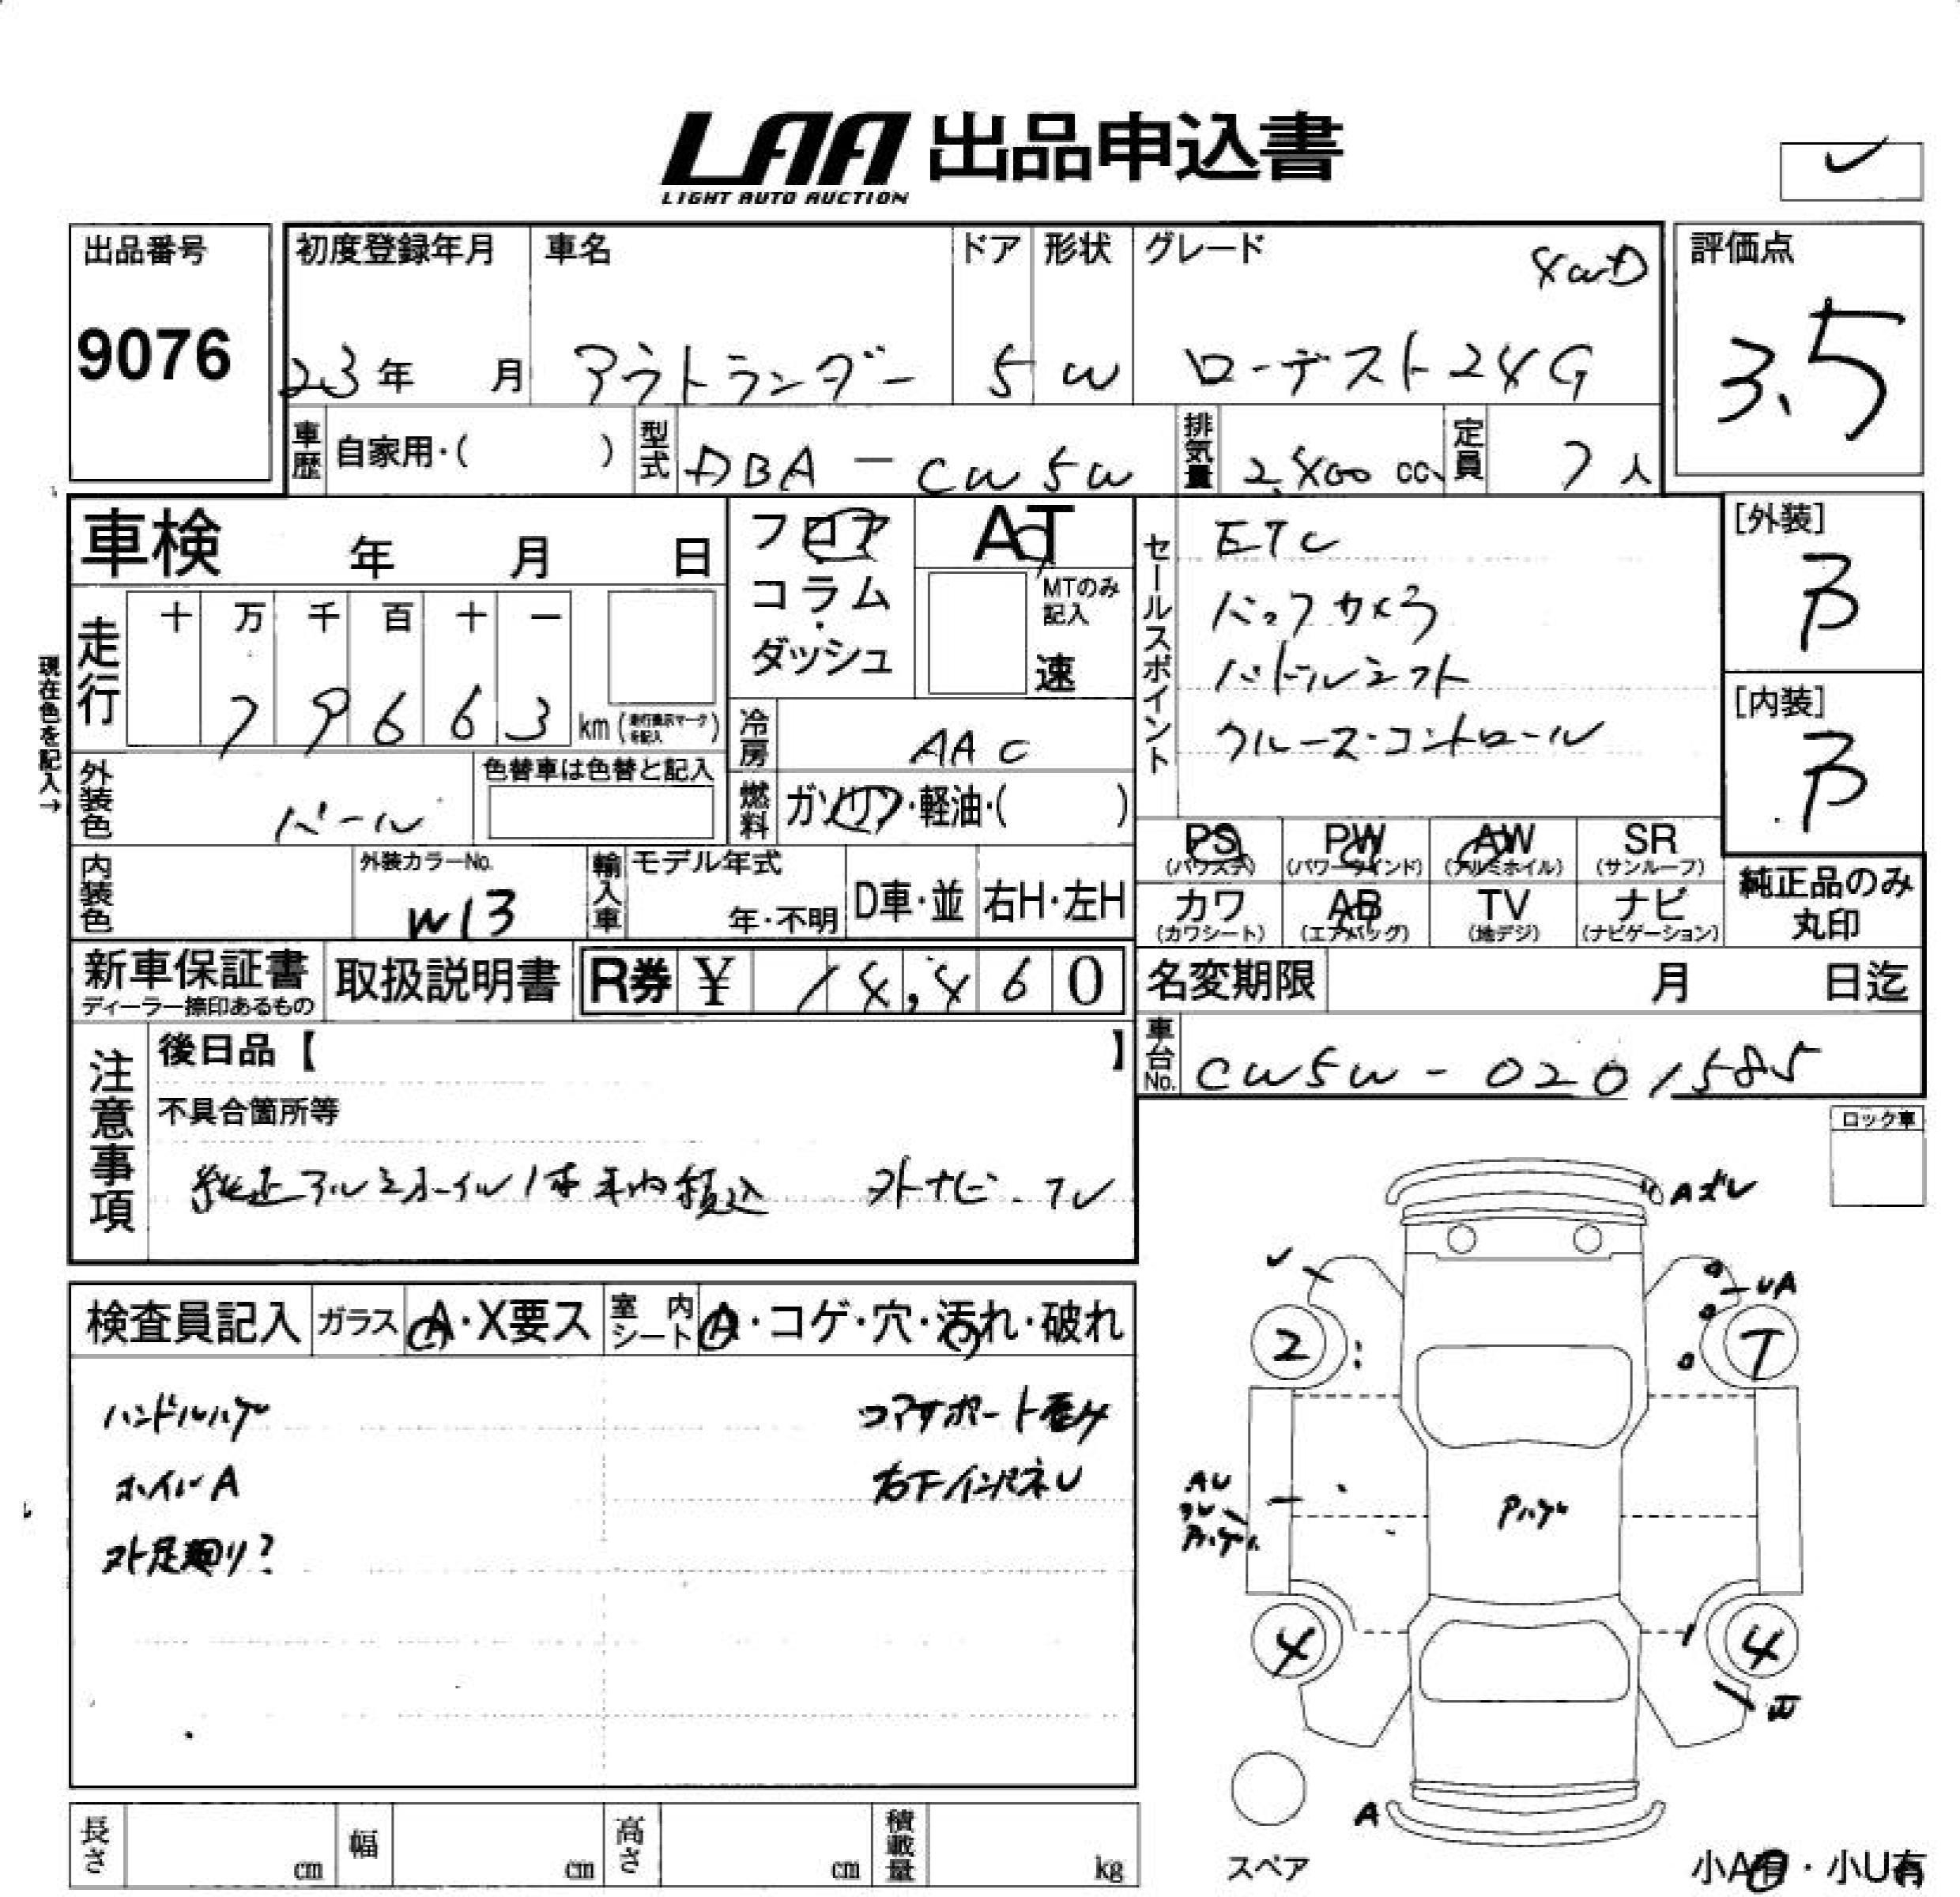 LAA 出品申込書
LIGHT AUTO AUCTION
出品番号
9076
初度登録年月
23年 月
車名
アウトランダー
ドア
5
形状
W
グレード
4WD
ローデスト24G
評価点
3.5
車歴 自家用・( )
型式 DBA-CW5W
排気量 2,400 cc
定員 7人
車検 年 月 日
フロア
コラム
ダッシュ
AT
MTのみ
記入
速
セールスポイント
ETC
バックカメラ
パドルシフト
クルーズ・コントロール
[外装]
B
[内装]
B
現在色を記入→
走行
十 万 千 百 十 一
7 9 6 6 3 km (走行表示マークを記入)
冷房 AAC
燃料 ガソリン・軽油・( )
外装色 パール
色替車は色替と記入
内装色
外装カラーNo.
W13
輸入車
モデル年式
年・不明
D車・並
右H・左H
PS
(パワステ)
PW
(パワーウインド)
AW
(アルミホイル)
SR
(サンルーフ)
カワ
(カワシート)
AB
(エアバッグ)
TV
(地デジ)
ナビ
(ナビゲーション)
純正品のみ
丸印
新車保証書
ディーラー捺印あるもの
取扱説明書
R券 ¥ 14,460
名変期限 月 日迄
車台No. CW5W-0201585
注意事項
後日品【 】
不具合箇所等
純正アルミホイル1本車内積込 外ナビ・TV
ロック車
検査員記入
ガラス A・X要ス
室内シート A・コゲ・穴・汚れ・破れ
ハンドルハゲ
コアサポート歪み
ホイルA
右下インパネU
外足廻り?
Aズレ
UA
2
7
AU
Pハゲ
4
4
W
A
スペア
小A有・小U有
長さ cm
幅 cm
高さ cm
積載量 kg